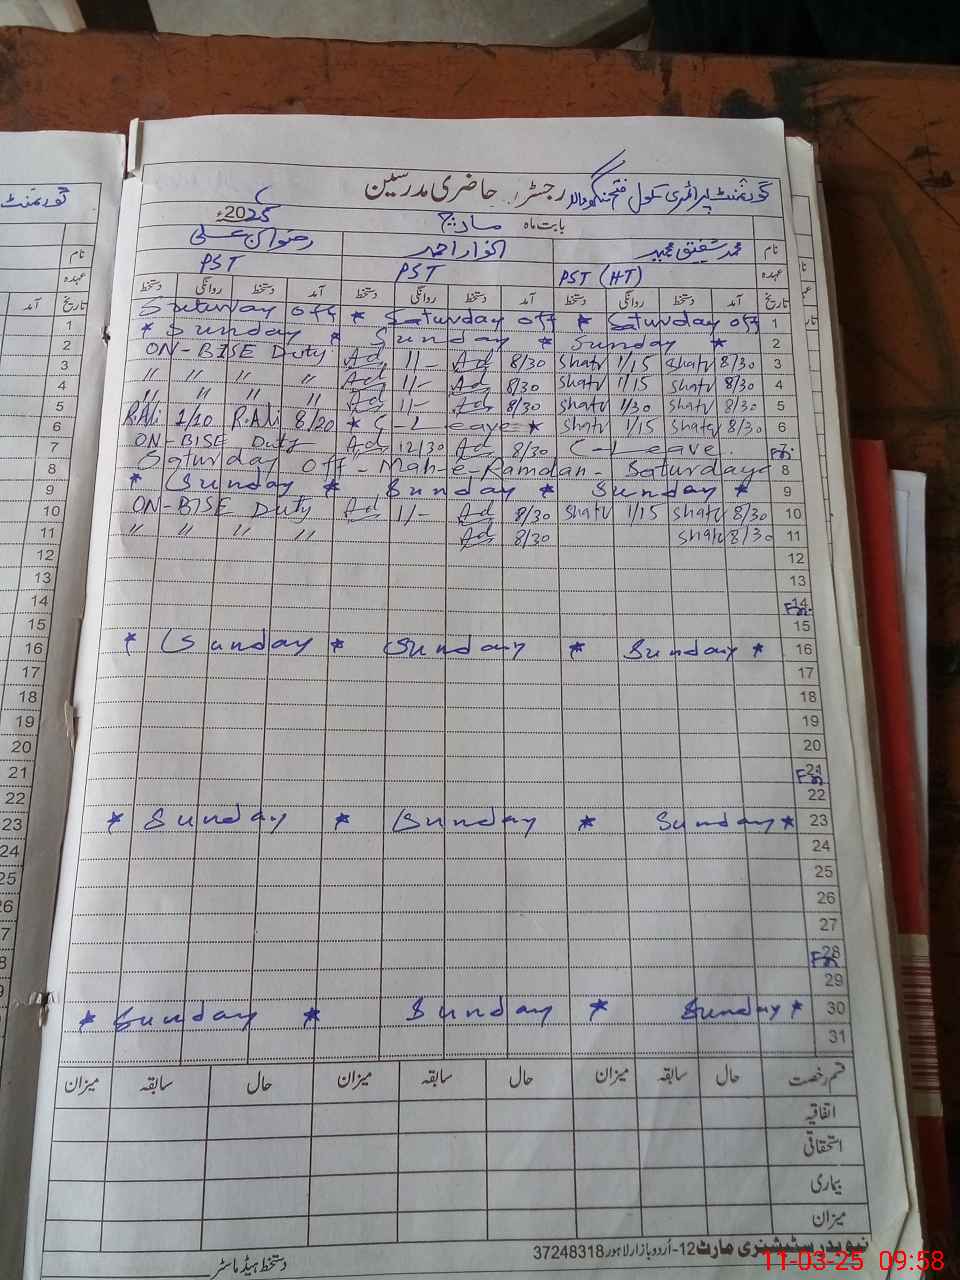 گورنمنٹ پرائمری سکول فتح سنگھ والا رجسٹر حاضری مدرسین
بابت ماہ مارچ 2025ء
نام محمد شفیق مجید انوار احمد رضوان علی
عہدہ PST (HT) PST PST
تاریخ آمد دستخط روانگی دستخط آمد دستخط روانگی دستخط آمد دستخط روانگی دستخط
Saturday off * Saturday off * Saturday off 1
* Sunday * Sunday * Sunday * 2
ON-BISE Duty Ad 11/- Ad 8/30 Shafv 1/15 Shafv 8/30 3
" " " " Ad 11/- Ad 8/30 Shafv 1/15 Shafv 8/30 4
" " " " Ad 11/- Ad 8/30 Shafv 1/30 Shafv 8/30 5
R.Ali 1/10 R.Ali 8/20 * C-Leave * Shafv 1/15 Shafv 8/30 6
ON-BISE Duty Ad 12/30 Ad 8/30 C-Leave. Fri 7
Saturday off - Mah-e-Ramdan - Saturday 8
* Sunday * Sunday * Sunday * 9
ON-BISE Duty Ad 1/- Ad 8/30 Shafv 1/15 Shafv 8/30 10
" " " " Ad 8/30 Shafv 8/30 11
12
13
Fri 14
15
* Sunday * Sunday * Sunday * 16
17
18
19
20
Fri 21
22
* Sunday * Sunday * Sunday * 23
24
25
26
27
Fri 28
29
* Sunday * Sunday * Sunday * 30
31
قسم رخصت حال سابقہ میزان حال سابقہ میزان حال سابقہ میزان
اتفاقیہ
استحقاقی
بیماری
میزان
نیو بدر سٹیشنری مارٹ 12-اُردو بازار لاہور 37248318
دستخط ہیڈ ماسٹر
11-03-25 09:58